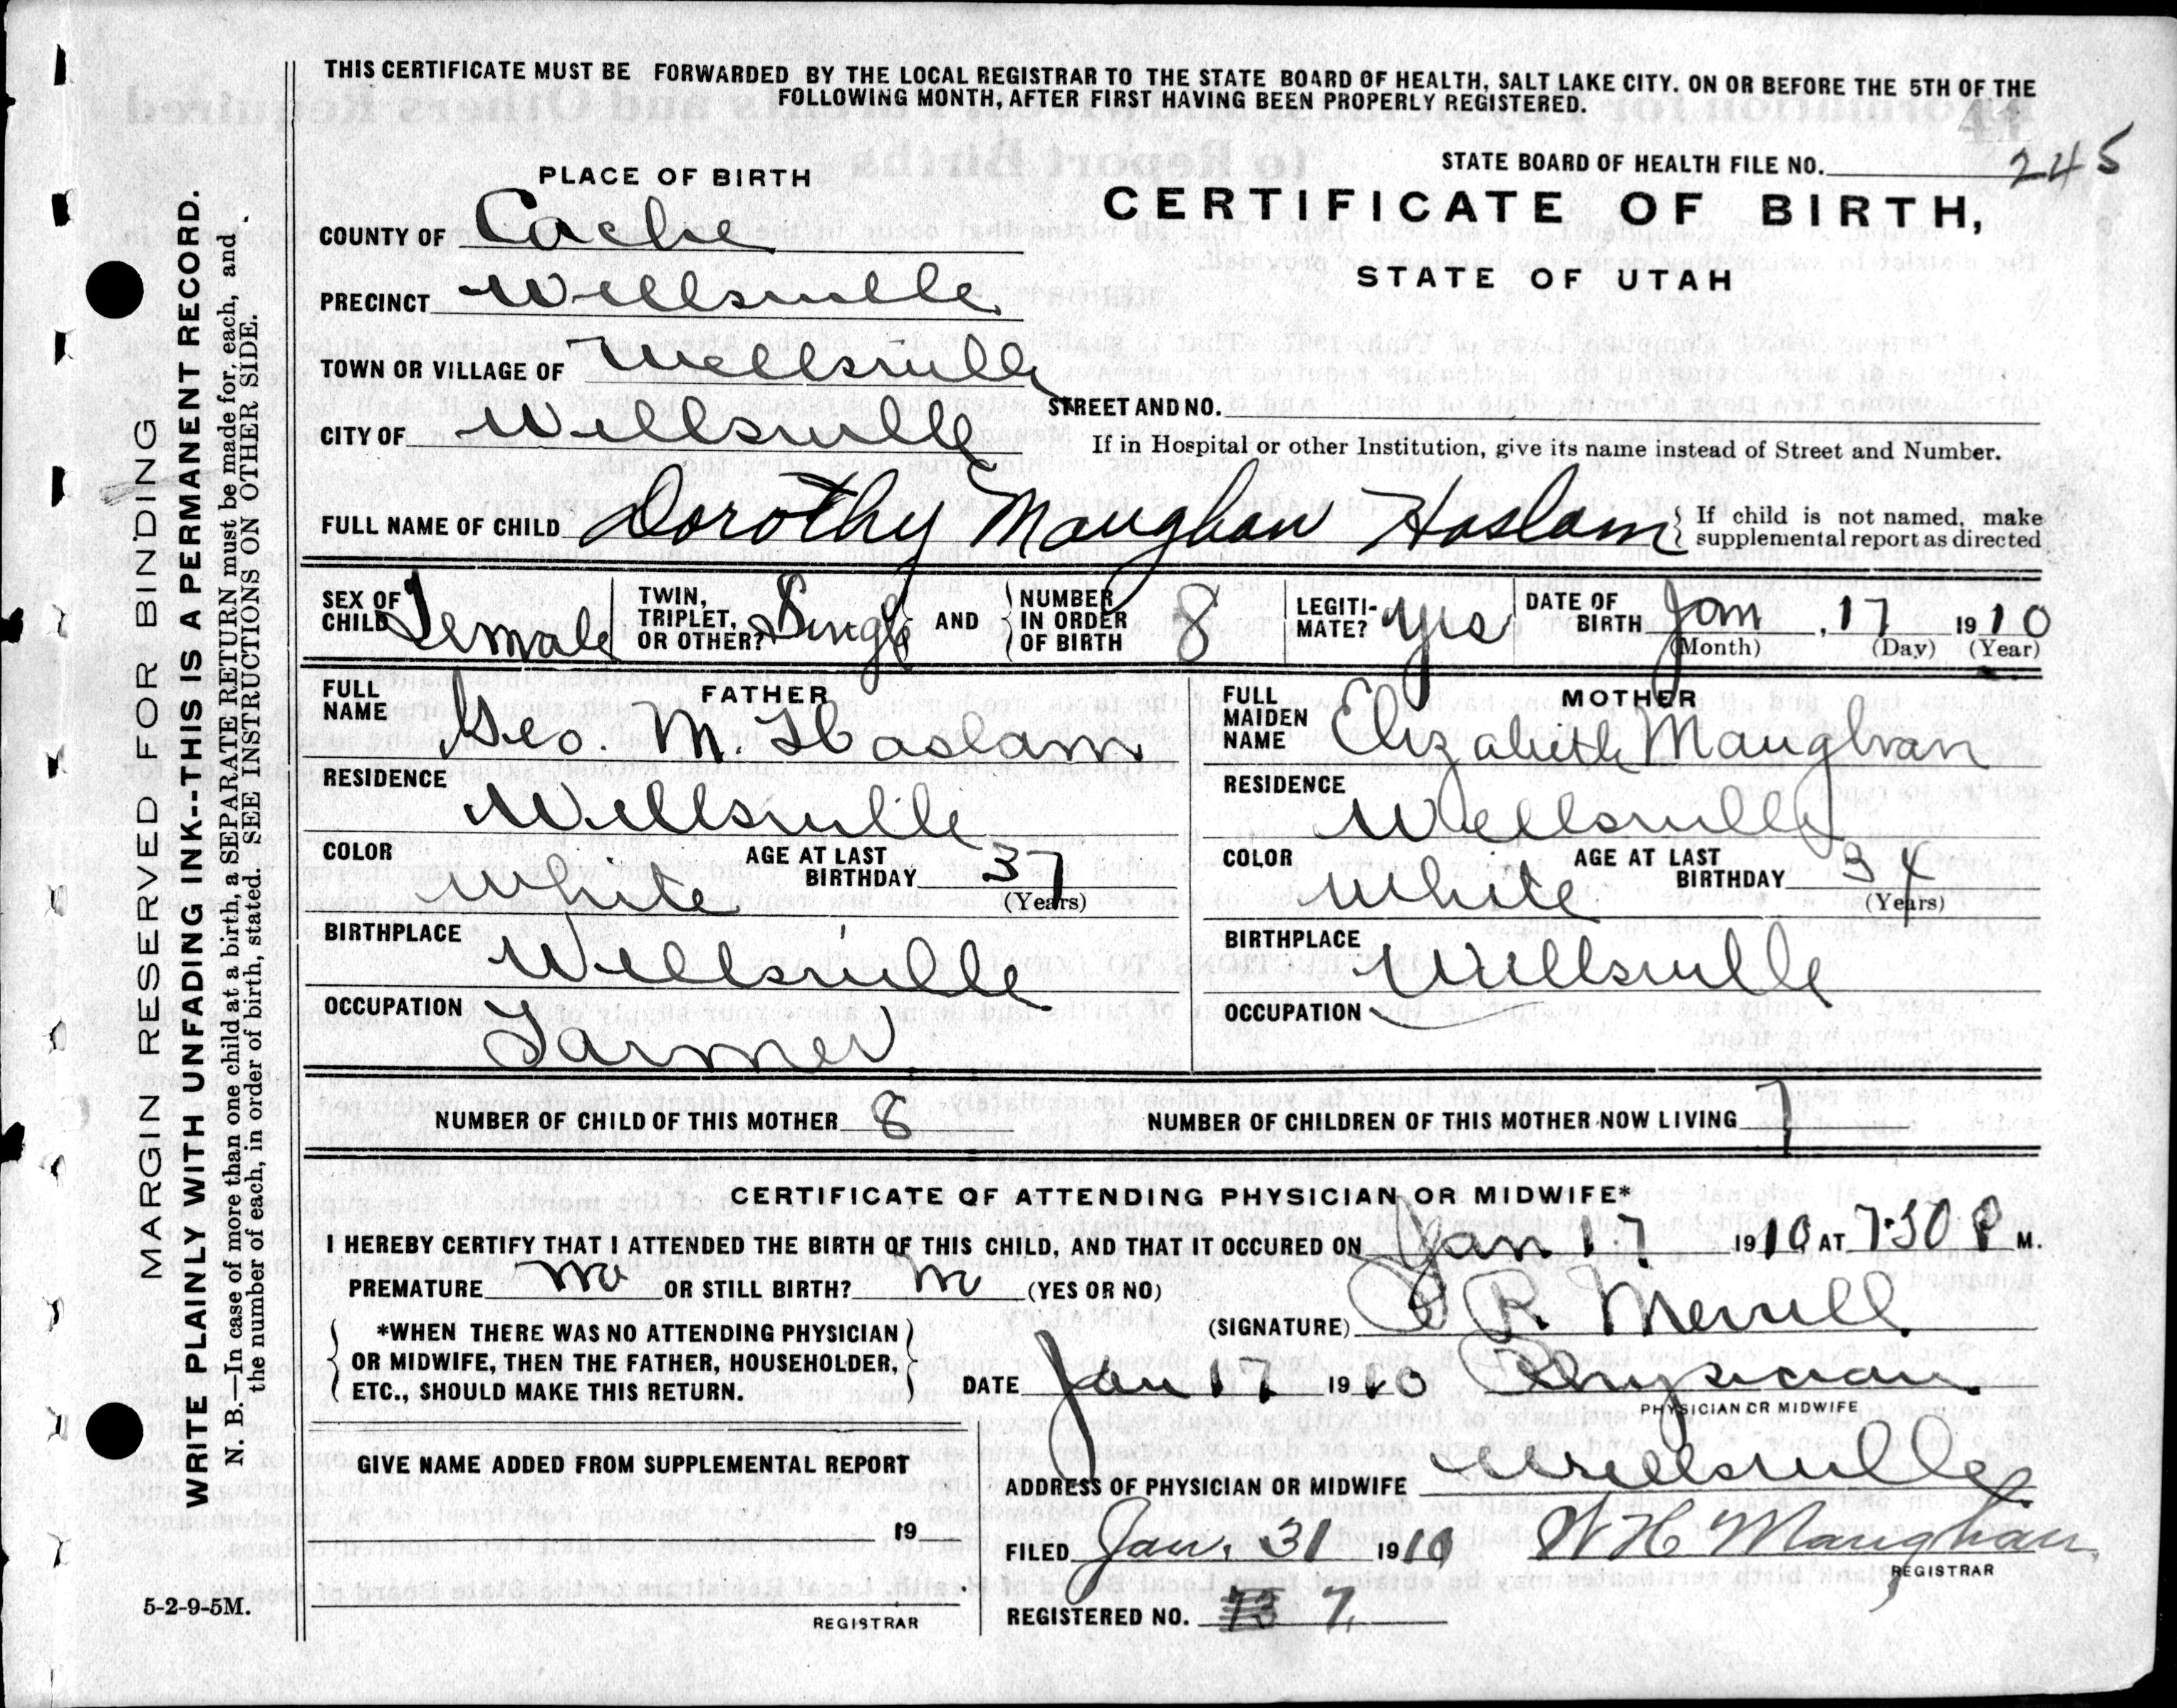 THIS CERTIFICATE MUST BE FORWARDED BY THE LOCAL REGISTRAR TO THE STATE BOARD OF HEALTH, SALT LAKE CITY. ON OR BEFORE THE 5TH OF THE
FOLLOWING MONTH, AFTER FIRST HAVING BEEN PROPERLY REGISTERED.
STATE BOARD OF HEALTH FILE NO. 245
CERTIFICATE OF BIRTH,
STATE OF UTAH
PLACE OF BIRTH
COUNTY OF Cache
PRECINCT Wellsville
TOWN OR VILLAGE OF Wellsville
CITY OF Wellsville
STREET AND NO.
If in Hospital or other Institution, give its name instead of Street and Number.
FULL NAME OF CHILD Dorothy Maughan Haslam
If child is not named, make
supplemental report as directed
SEX OF CHILD Female
TWIN, TRIPLET, OR OTHER? Single
AND
NUMBER IN ORDER OF BIRTH 8
LEGITI-MATE? Yes
DATE OF BIRTH Jan, 17 1910
(Month) (Day) (Year)
FATHER
FULL NAME Geo. M. Haslam
RESIDENCE Wellsville
COLOR White
AGE AT LAST BIRTHDAY 37
(Years)
BIRTHPLACE Wellsville
OCCUPATION Farmer
MOTHER
FULL MAIDEN NAME Elizabeth Maughan
RESIDENCE Wellsville
COLOR White
AGE AT LAST BIRTHDAY 34
(Years)
BIRTHPLACE Wellsville
OCCUPATION
NUMBER OF CHILD OF THIS MOTHER 8
NUMBER OF CHILDREN OF THIS MOTHER NOW LIVING 7
CERTIFICATE OF ATTENDING PHYSICIAN OR MIDWIFE*
I HEREBY CERTIFY THAT I ATTENDED THE BIRTH OF THIS CHILD, AND THAT IT OCCURED ON Jan 17 1910 AT 7-30 P M.
PREMATURE no OR STILL BIRTH? no (YES OR NO)
(SIGNATURE) R Merrill
*WHEN THERE WAS NO ATTENDING PHYSICIAN
OR MIDWIFE, THEN THE FATHER, HOUSEHOLDER,
ETC., SHOULD MAKE THIS RETURN.
DATE Jan 17 1910 Physician
PHYSICIAN OR MIDWIFE
GIVE NAME ADDED FROM SUPPLEMENTAL REPORT
19
REGISTRAR
ADDRESS OF PHYSICIAN OR MIDWIFE Wellsville
FILED Jan. 31 1910 W H Maughan
REGISTRAR
REGISTERED NO. 7.
5-2-9-5M.
MARGIN RESERVED FOR BINDING
WRITE PLAINLY WITH UNFADING INK--THIS IS A PERMANENT RECORD.
N. B.—In case of more than one child at a birth, a SEPARATE RETURN must be made for, each, and
the number of each, in order of birth, stated. SEE INSTRUCTIONS ON OTHER SIDE.